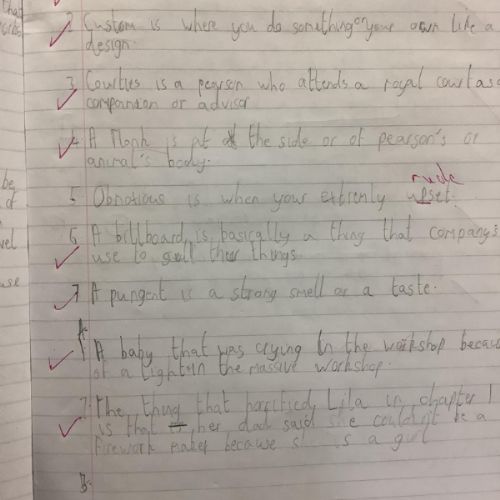 that
2 Custom is where you do something on your own like a
design.
3 Courties is a pearson who attends a royal court as a
companion or advisor
4 A Flank is at the side or of pearson's or
animal's body.
rude
5 Obnotious is when your extremly upset.
6 A billboard is basically a thing that company's
use to sell their things.
7 A pungent is a strong smell or a taste.
A.
1 A baby that was crying in the workshop because
of a light in the massive workshop.
2. The thing that horrified Lila in chapter 1
is that her dad said she couldn't be a
firework maker because is a girl
B.
be
of
vel
use